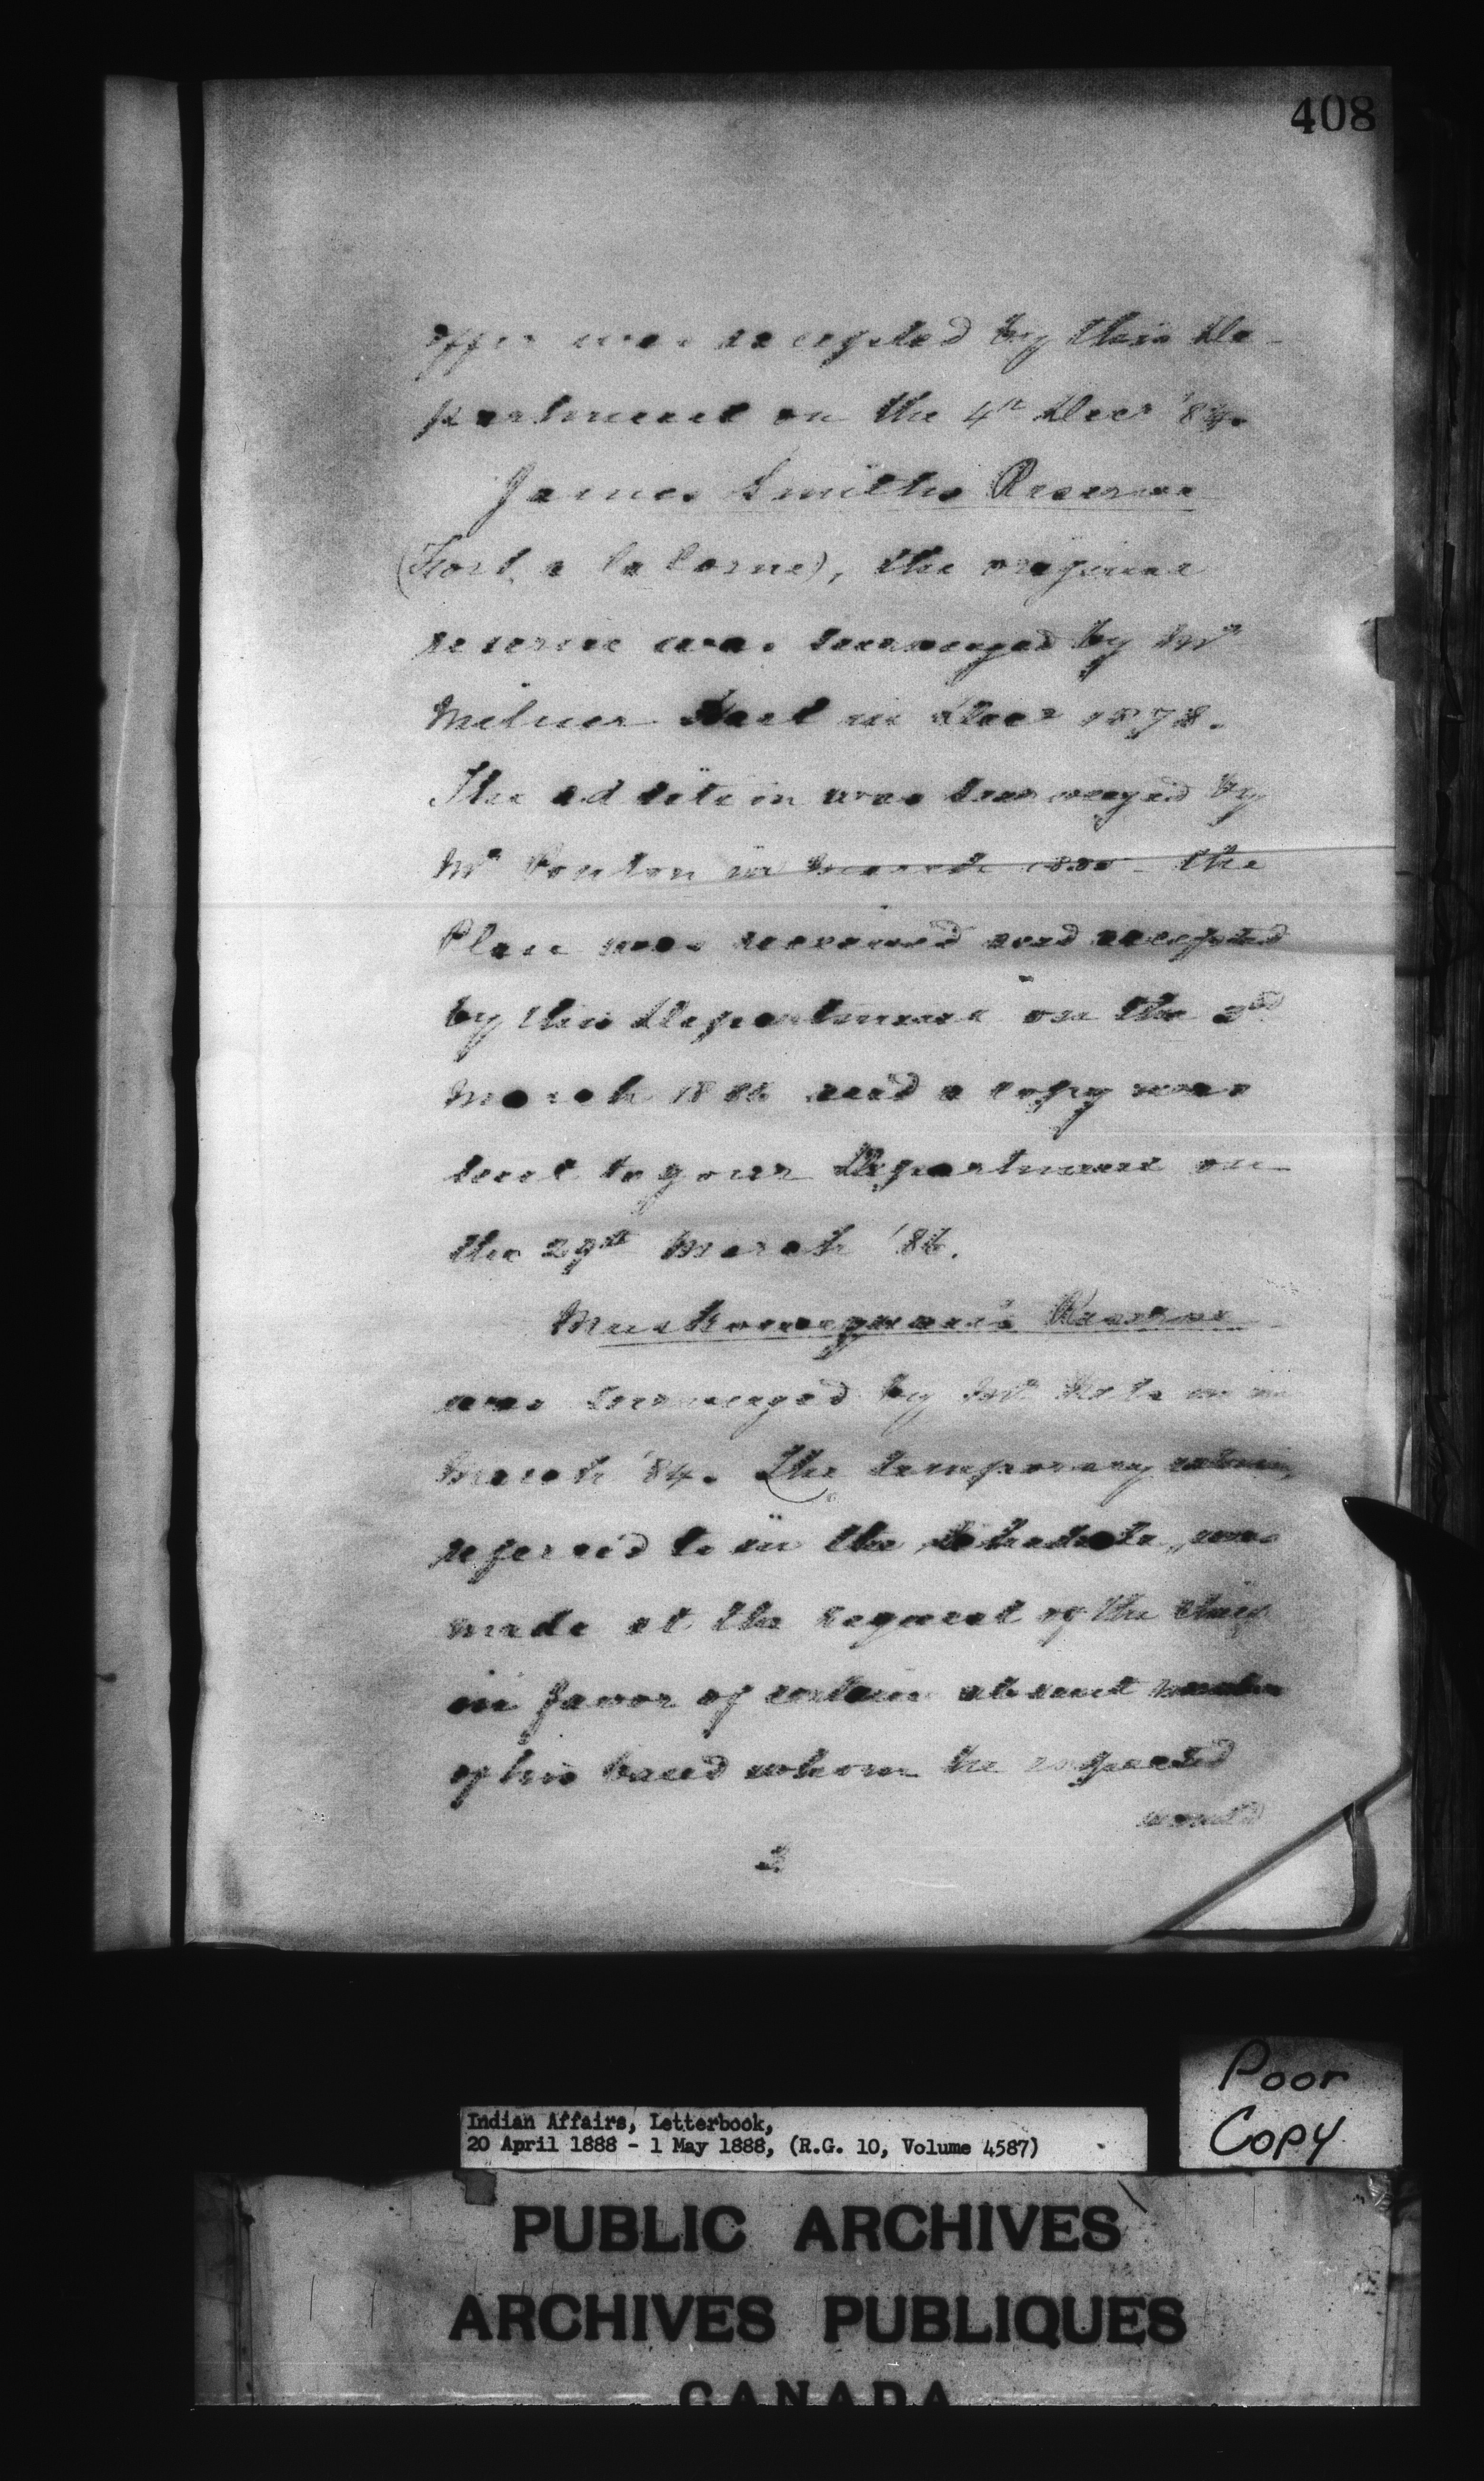 408
offer was accepted by this De-
partment on the 4th Decr
James Smiths Reserve
(Fort a la Corne), the original
reserve was surveyed by Mr
Milner Hart in Decr 1878.
The addition was surveyed by
Mr Ponton in March the
Plan was received and accepted
by this Department on the
March 1886 and a copy was
sent to your Department on
the 29th March '86.
Reserve
was surveyed by Mr in
March '84. The temporary
referred to in the Schedule, was
made at the request of the Chief
in favor of certain absent members
of his band whom he expected
would
2
Poor
Copy
Indian Affairs, Letterbook,
20 April 1888 - 1 May 1888, (R.G. 10, Volume 4587)
PUBLIC ARCHIVES
ARCHIVES PUBLIQUES
CANADA